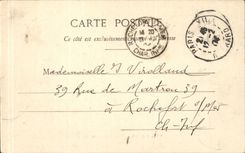 CARTE POSTALE
Ce côté est exclusivement
Mademoiselle J Virolland
39 Rue de Martrou 39
à Rochefort s/Mer
Ch-Inf